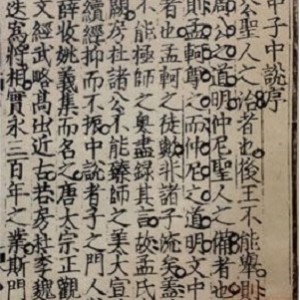 中子中說序
公聖人之治者也後王不能舉則
周公之道明仲尼聖人之備者也
則孟軻尊之而仲尼之道明文中
者也孟軻之徒歟非諸子流矣蓋
不能極師之奧盡録其言故孟氏
闕房杜諸公不能臻師之美大宣
續經抑而不振中說者子之門人
薛收姚義集而名之唐太宗正觀
文經武略髙出近古若房杜李魏
迭爲將相實永三百年之業斯門